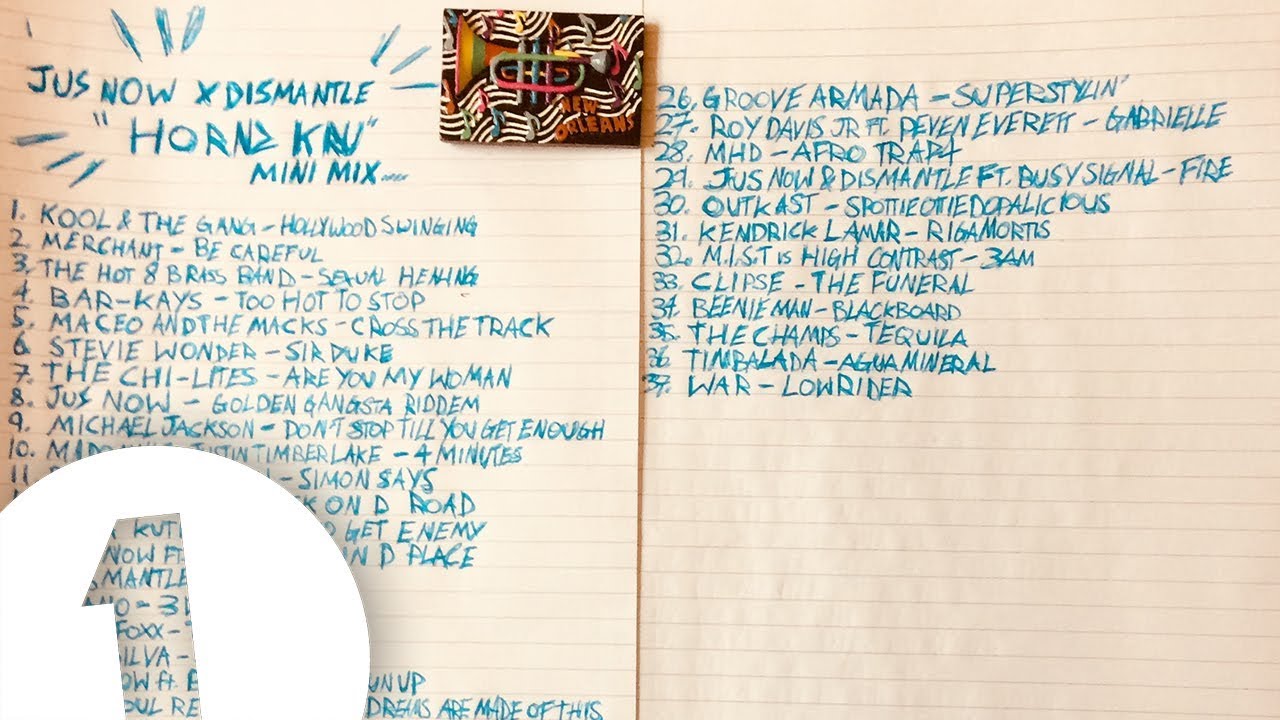 JUS NOW X DISMANTLE
"HORNZ KRU"
MINI MIX.....
NEW
ORLEANS
1. KOOL & THE GANG - HOLLYWOOD SWINGING
2. MERCHANT - BE CAREFUL
3. THE HOT 8 BRASS BAND - SEXUAL HEALING
4. BAR-KAYS - TOO HOT TO STOP
5. MACEO AND THE MACKS - CROSS THE TRACK
6. STEVIE WONDER - SIR DUKE
7. THE CHI-LITES - ARE YOU MY WOMAN
8. JUS NOW - GOLDEN GANGSTA RIDDEM
9. MICHAEL JACKSON - DON'T STOP TILL YOU GET ENOUGH
10. JUSTIN TIMBERLAKE - 4 MINUTES
11. - SIMON SAYS
ON D ROAD
KUTI GET ENEMY
NOW FT. IN D PLACE
SMANTLE
- 3
FOXX -
SILVA -
OW ft. UN UP
OUL RE DREAMS ARE MADE OF THIS
1
26. GROOVE ARMADA - SUPERSTYLIN'
27. ROY DAVIS JR FT. PEVEN EVERETT - GABRIELLE
28. MHD - AFRO TRAP4
29. JUS NOW & DISMANTLE FT. BUSY SIGNAL - FIRE
30. OUTKAST - SPOTTIEOTTIEDOPALICIOUS
31. KENDRICK LAMAR - RIGAMORTIS
32. M.I.S.T IS HIGH CONTRAST - 3AM
33. CLIPSE - THE FUNERAL
34. BEENIE MAN - BLACKBOARD
35. THE CHAMPS - TEQUILA
36 TIMBALADA - AGUA MINERAL
37. WAR - LOWRIDER